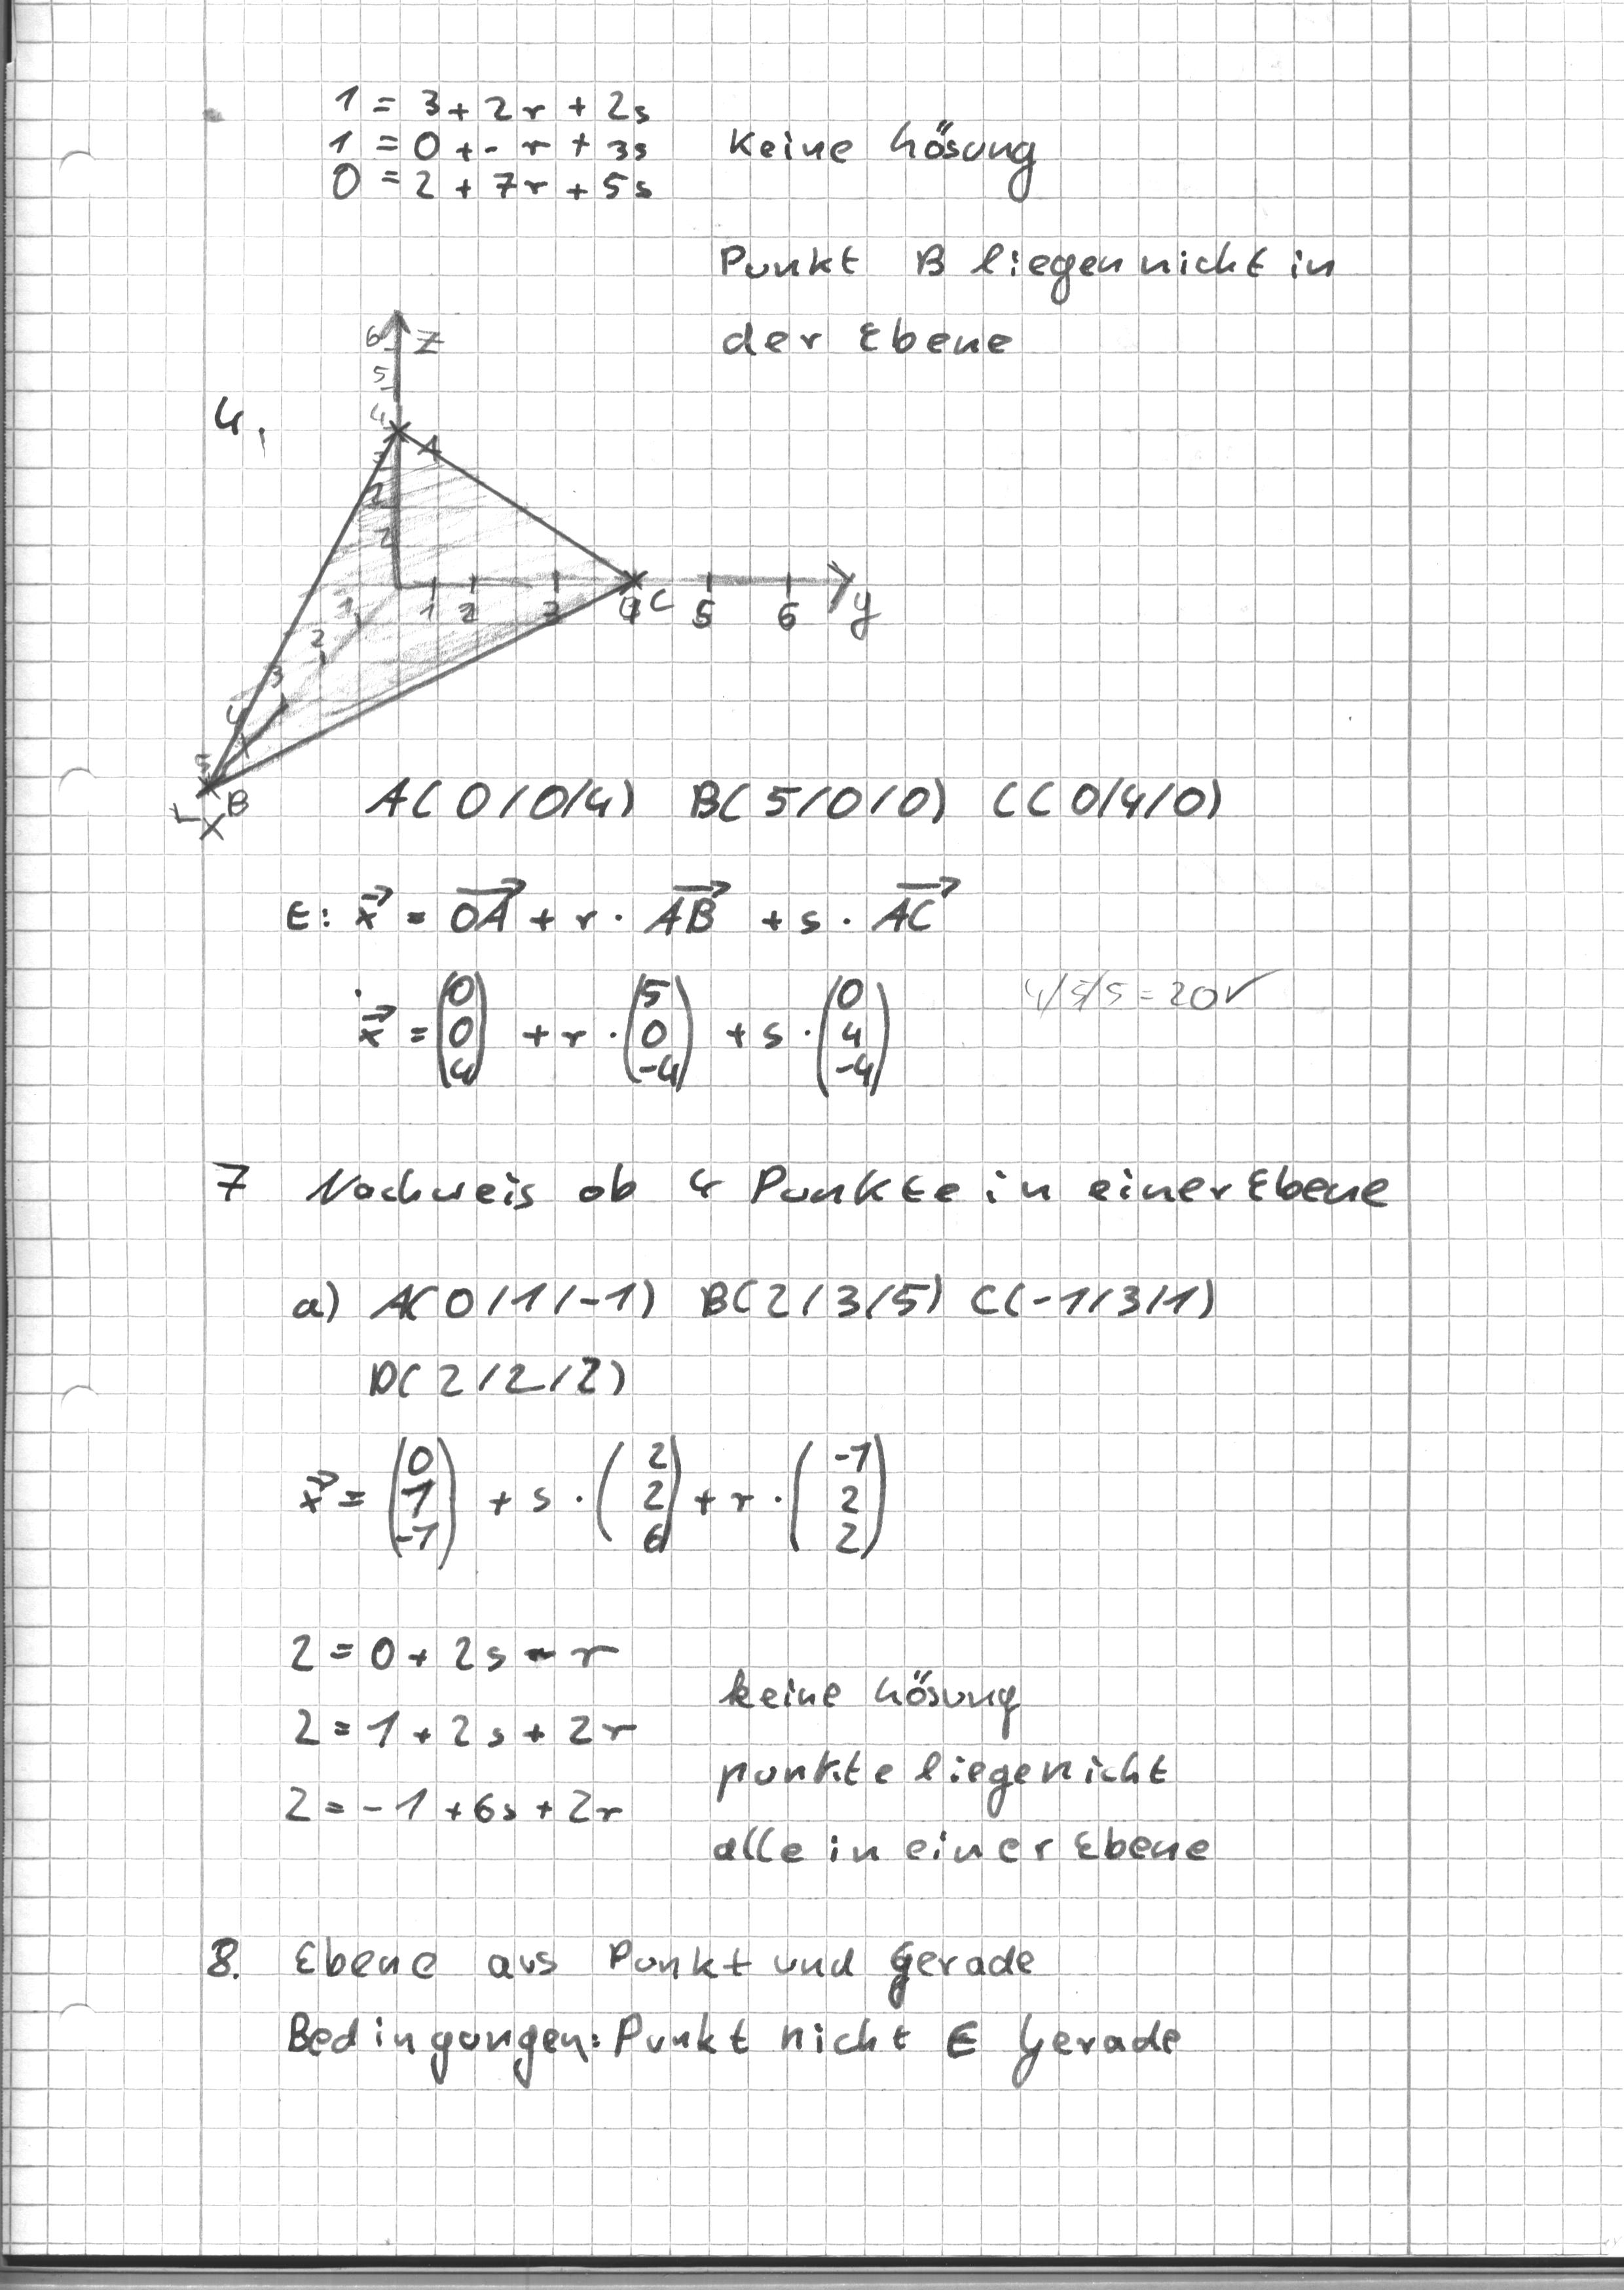 1 = 3 + 2r + 2s
1 = 0 + - r + 3s
0 = 2 + 7r + 5s
Keine Lösung
Punkt B liegen nicht in
der Ebene
4.
6 z
5
4
A
3
2
1
1 2 3 4 C 5 6 y
1
2
3
4
5
B
x
A(0/0/4) B(5/0/0) C(0/4/0)
E: x⃗ = OA⃗ + r · AB⃗ + s · AC⃗
x⃗ = (0 0 4) + r · (5 0 -4) + s · (0 4 -4)
4/5/5 = 20 ✓
7 Nachweis ob 4 Punkte in einer Ebene
a) A(0/1/-1) B(2/3/5) C(-1/3/1)
D(2/2/2)
x⃗ = (0 1 -1) + s · (2 2 6) + r · (-1 2 2)
2 = 0 + 2s - r
2 = 1 + 2s + 2r
2 = -1 + 6s + 2r
keine Lösung
punkte liege nicht
alle in einer Ebene
8. Ebene aus Punkt und Gerade
Bedingungen: Punkt nicht ∈ Gerade